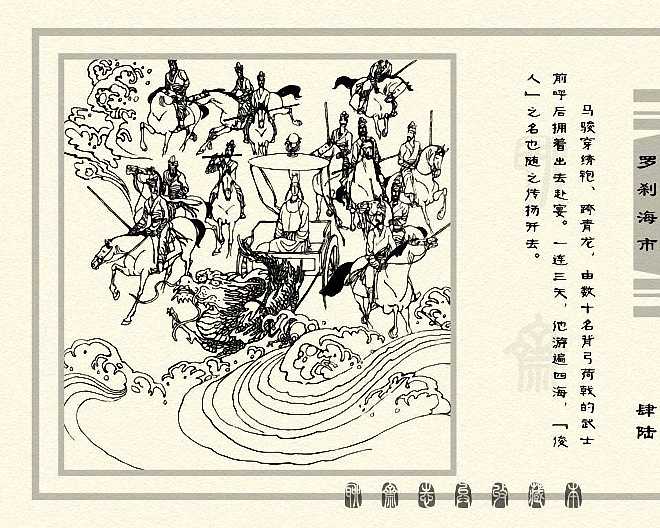 马骏穿绣袍、跨青龙，由数十名背弓荷戟的武士
前呼后拥着出去赴宴。一连三天，他游遍四海，『俊
人』之名也随之传扬开去。
罗刹海市
肆陆
聊斋志异收藏本